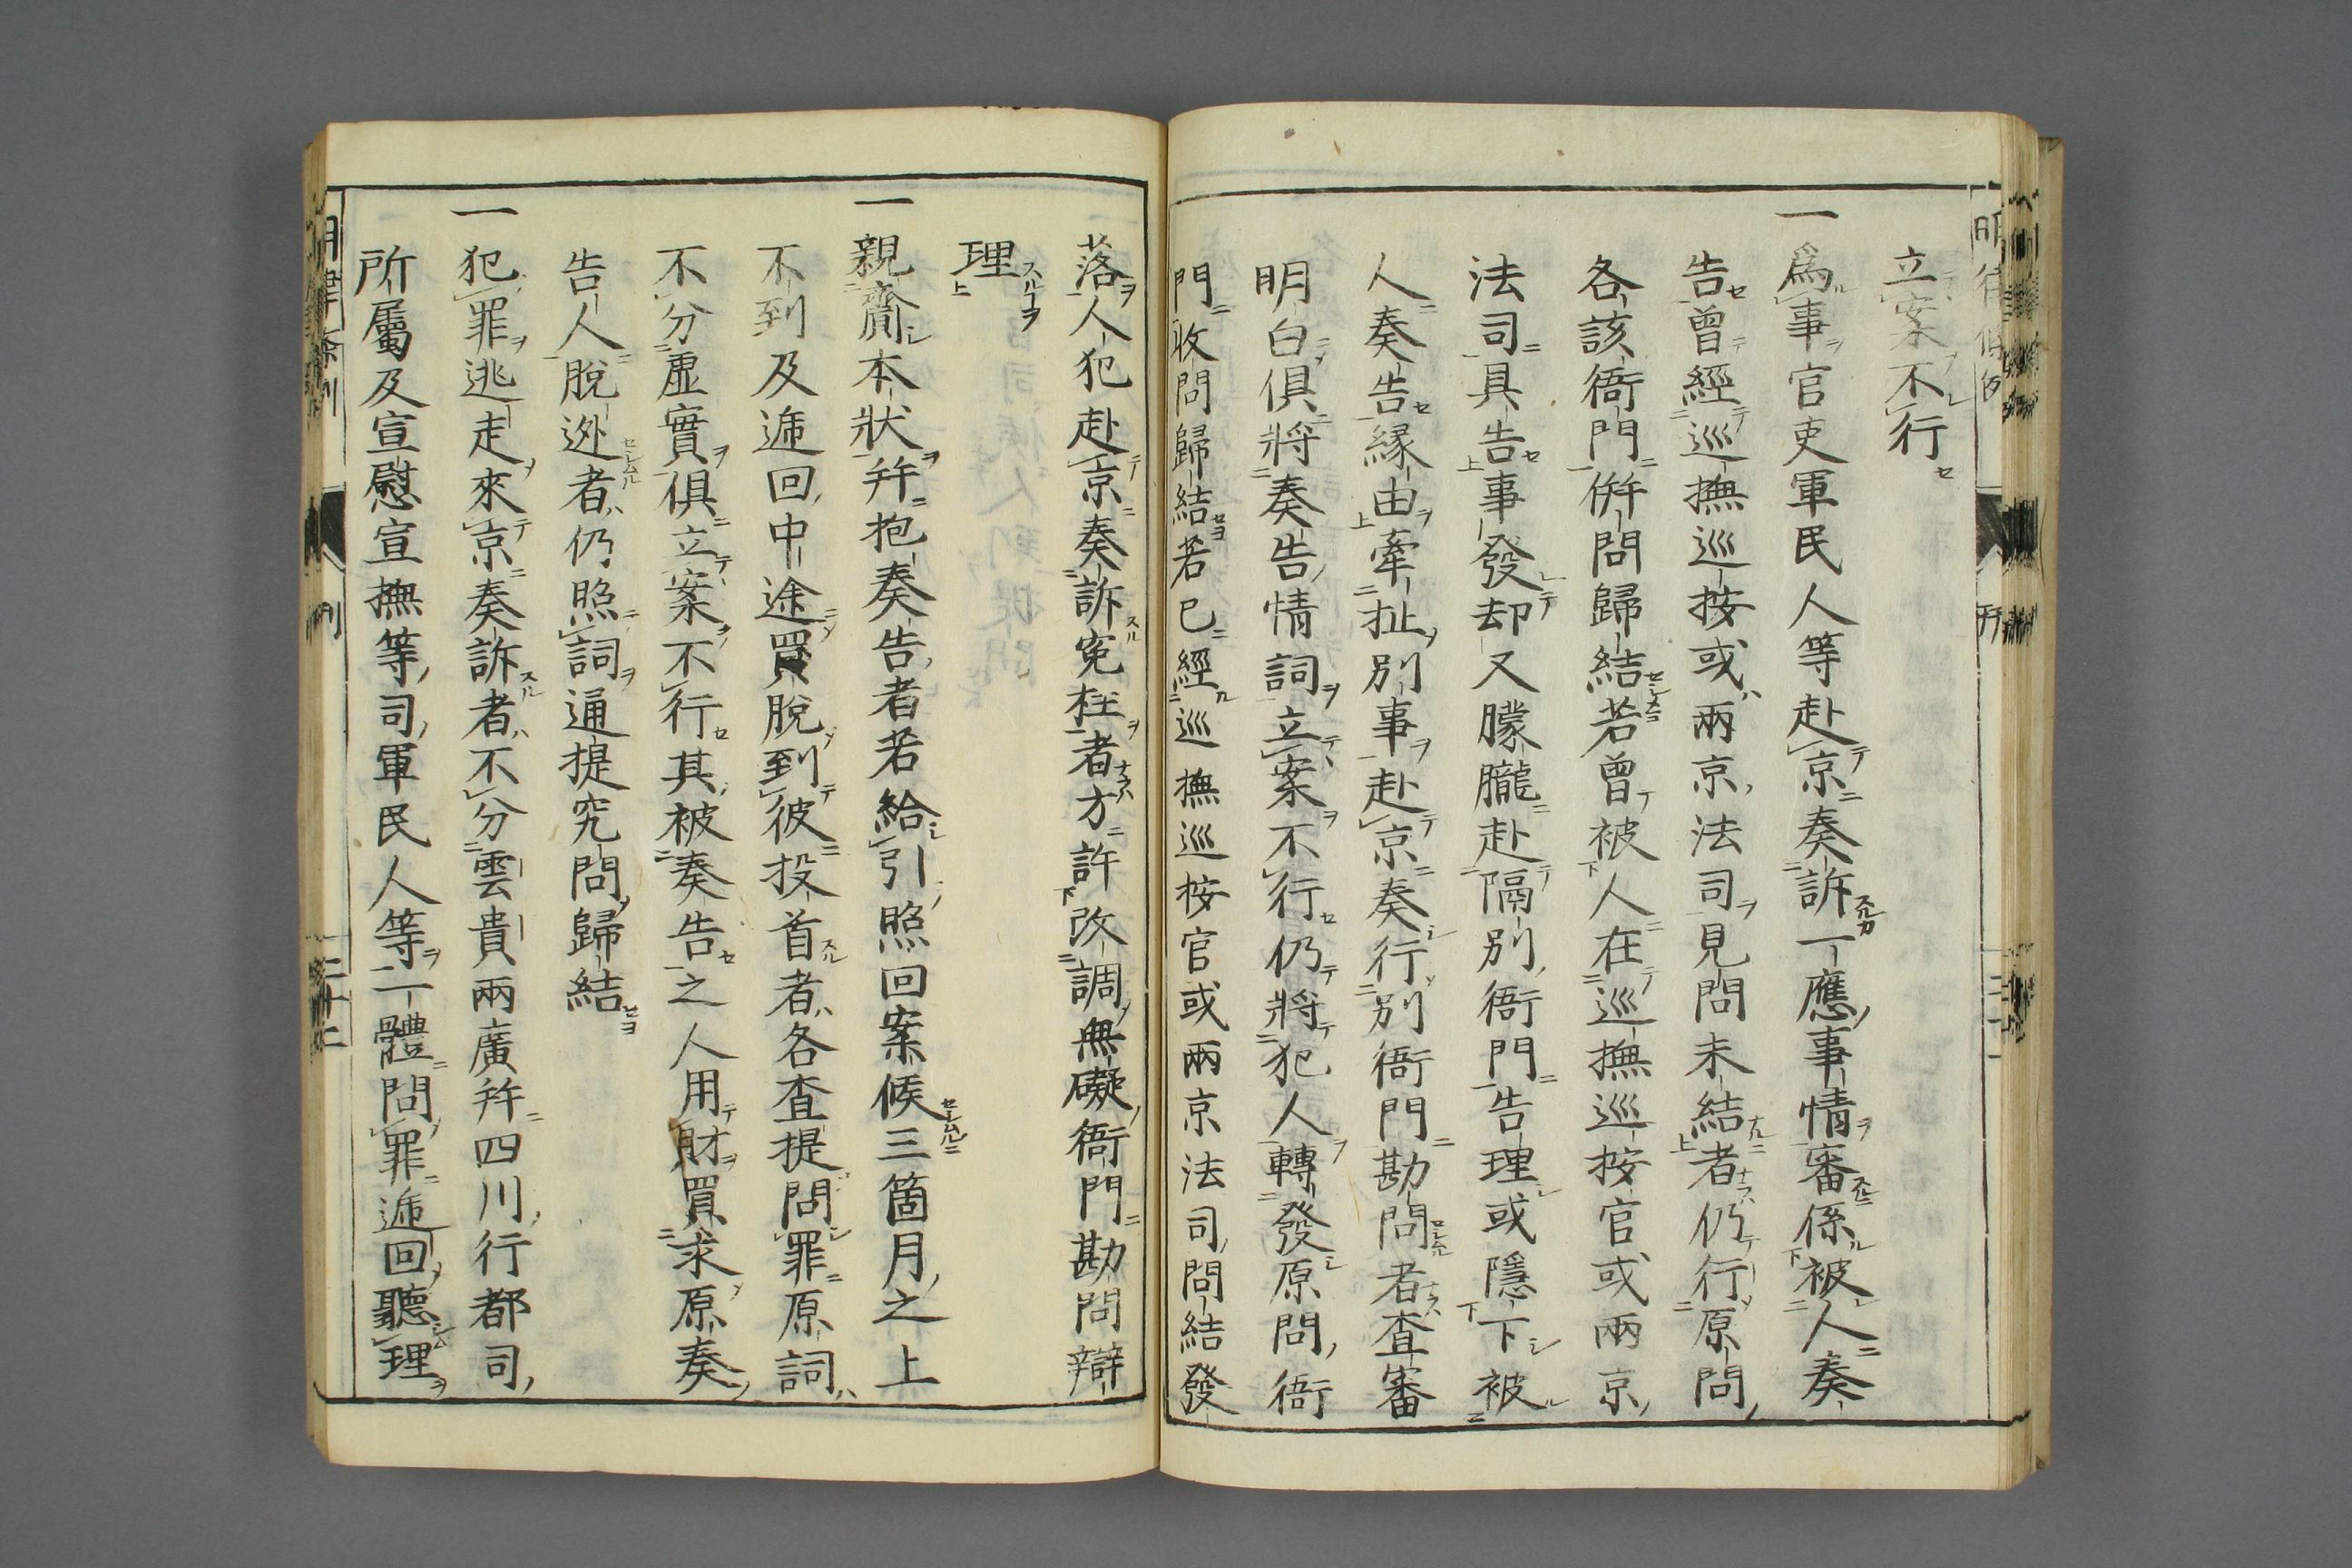 立案不行
一爲事官吏軍民人等赴京奏訴一應事情審係被人奏
告曾經巡撫巡按或兩京法司見問未結者仍行原問
各該衙門併問歸結若曾被人在巡撫巡按官或兩京
法司具告事發却又朦朧赴隔別衙門告理或隱下被
人奏告緣由牽扯別事赴京奏行別衙門勘問者查審
明白俱將奏告情詞立案不行仍將犯人轉發原問衙
門收問歸結若已經巡撫巡按官或兩京法司問結發
落人犯赴京奏訴寃枉者方許改調無礙衙門勘問辯
理
一親齎本狀幷抱奏告者若給引照回案候三箇月之上
不到及逓回中途買脫到彼投首者各查提問罪原詞
不分虛實俱立案不行其被奏告之人用財買求原奏
告人脫迯者仍照詞通提究問歸結
一犯罪逃走來京奏訴者不分雲貴兩廣幷四川行都司
所屬及宣慰宣撫等司軍民人等一體問罪逓回聽理